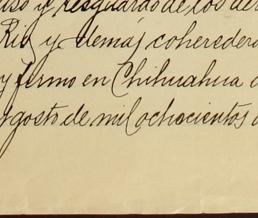 uso y resguardo de los der
Rio y demás coheredero
y firmo en Chihuahua a
gosto de mil ochocientos